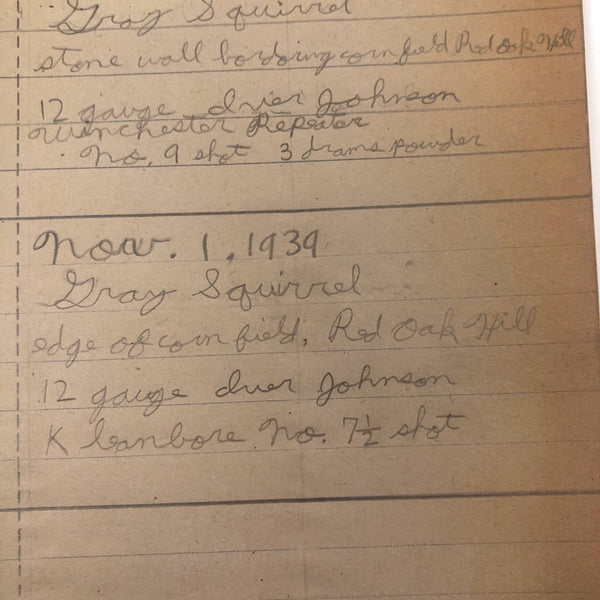 Gray Squirrel
stone wall bordoring cornfield Red Oak Hill
12 gauge Iver Johnson
Winchester Repeater
No. 9 shot 3 drams powder
Nov. 1, 1939
Gray Squirrel
edge of corn field, Red Oak Hill
12 gauge Iver Johnson
Kleanbore No. 7½ shot